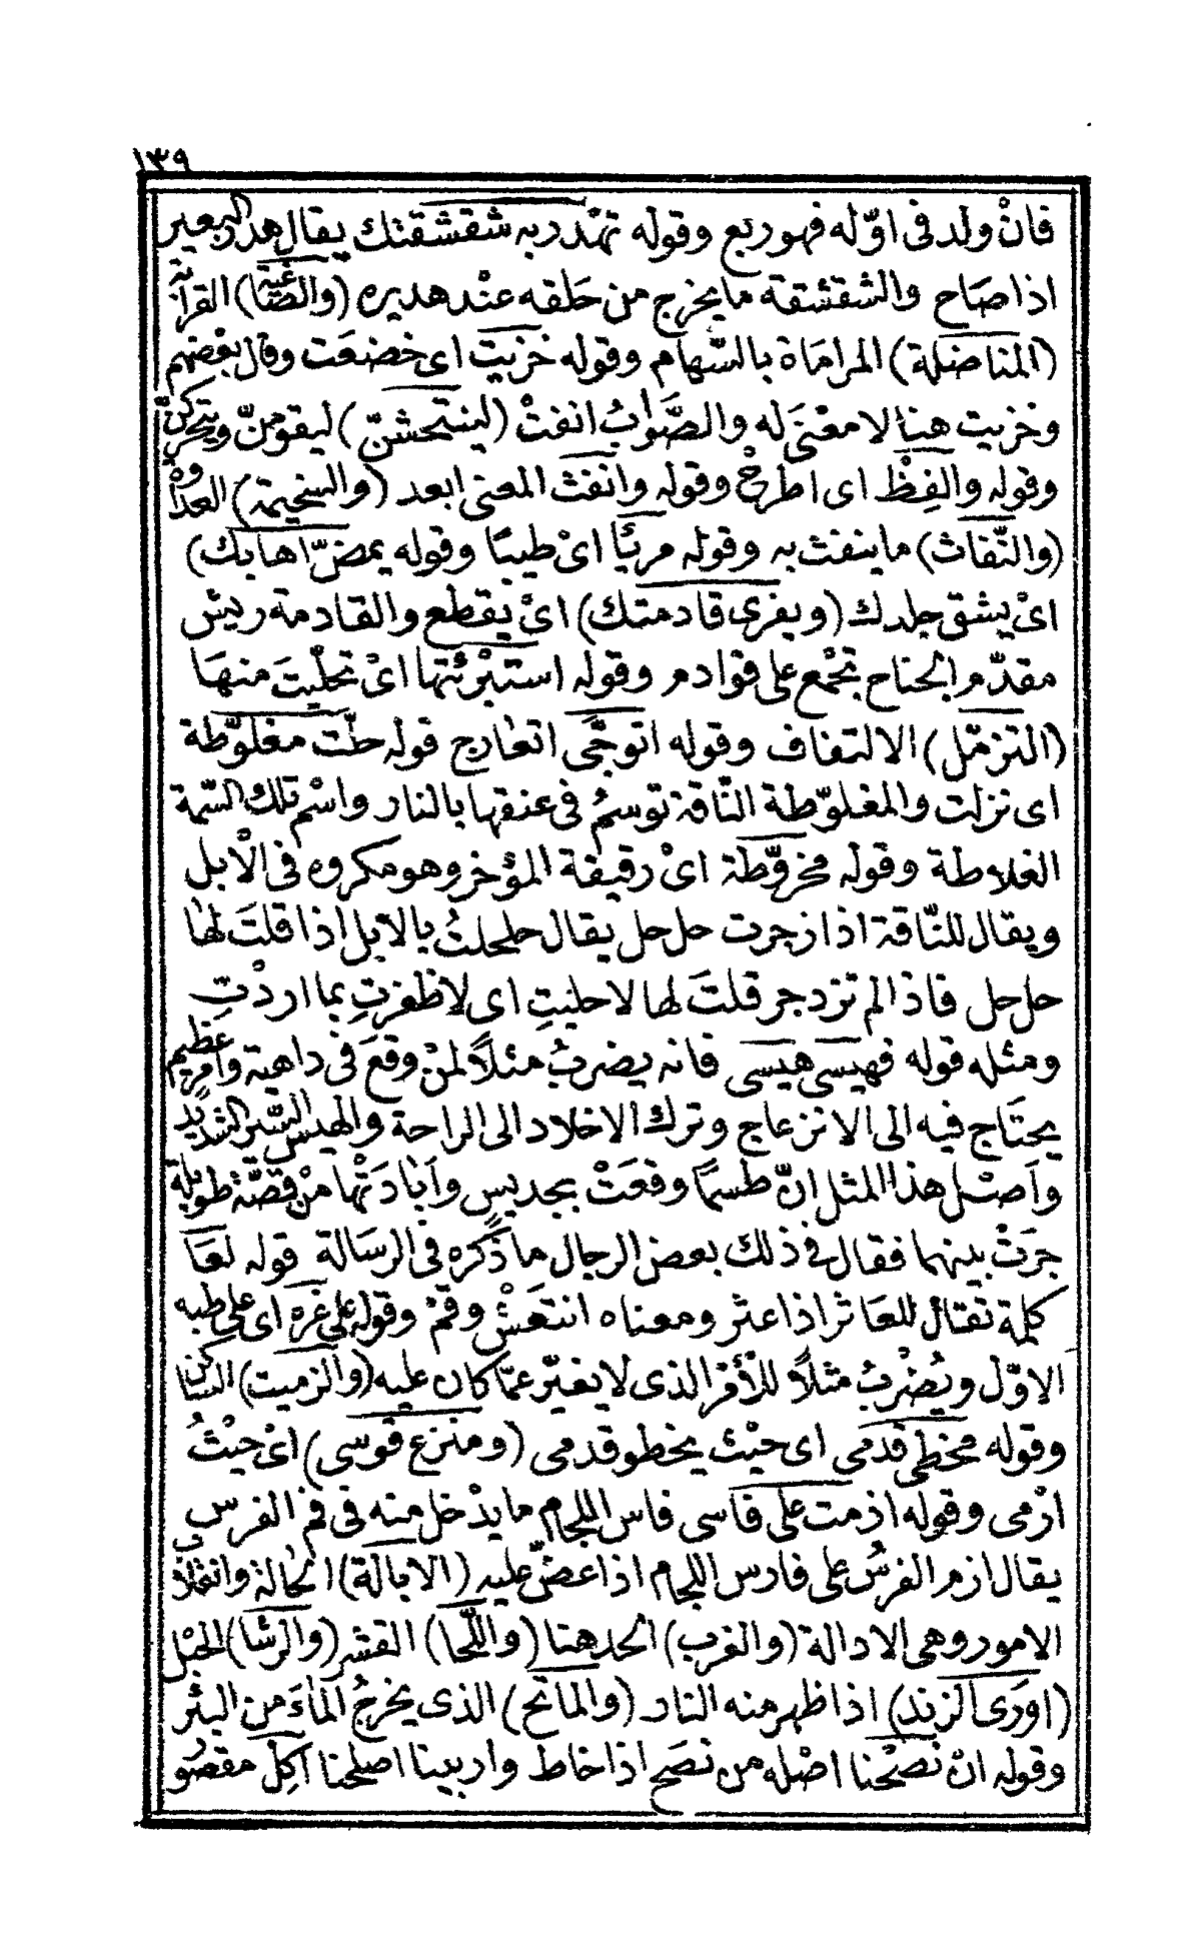 ١٣٩
فانْ ولد فى اوّله فهو ربع وقوله تهْدر به شقشقتك يقال هدر البعير
اذا صَاح والشقشقة ما يخرج من حَلقه عنْد هديره (والضاغية) القرآنة
(المناضلة) المرامَاة بالسّهام وقوله خزيت اى خضعَت وقال بعضهم
وخزيت هنا لا معْنىَ له والصَّوابُ انفتْ (ليتحشنّ) ليقومنّ ويتحركنّ
وقوله والفِظْ اى اطرحْ وقوله وانفث المعنى ابعد (والسخيمة) العداوة
(والنّفاث) ما ينفث به وقوله مريًا اىْ طيبًا وقوله يمضّ اهابك)
اىْ يشق جلدك (ويفرى قادمتك) اىْ يقطع والقادمة ريش
مقدّم الجناح تجْمع على قوادم وقوله استبْرئتها اىْ تخلّيتَ منهَا
(التزمّل) الالتفاف وقوله اتوجّى اتعارج قوله حلّت مغلوّطة
اى نزلت والمغلوّطة النّاقة توسمُ فى عنقها بالنار واسْم تلك السّمة
الغلاطة وقوله مخروّطة اىْ رقيقة المؤخر وهو مكروه فى الْابل
ويقال للنّاقة اذا زجرت حل حل يقال حلحلتُ بالابل اذا قلتَ لهَا
حل حل فاذا لم تزدجر قلتَ لها لا حليتِ اى لا ظفرتِ بما اردْتِ
ومثله قوله فهيسى هيسى فانه يضربُ مثلاً لمنْ وقعَ فى داهية وامر عظيم
يحتَاج فيه الى الانزعاج وترك الاخلاد الى الراحة والهيس السّير الشديد
وأصْل هذا المثل انّ طسمًا وقعَتْ بجديس وأبادَتْها منْ قصّة طويلة
جرَتْ بينهما فقال فى ذلك بعض الرجال ما ذكره فى الرسَالة قوله لعَا
كلمة تقال للعَاثر اذا عثر ومعناه انتعَشْ وقمْ وقوله على غره اى على طيه
الاوّل ويُضْربُ مثلاً للأمْر الذى لا يغيّر عمّا كان عليه (والزميت) الساكن
وقوله مخطى قدَمى اى حيْث يخطو قدمى (ومنزع قوسى) اىْ حيْثُ
ارْمى وقوله ازمت على فاسى فاس اللجام ما يدْخل منه فى فم الفرس
يقال ازم الفرسُ على فارس اللجام اذا عضّ عليه (الابالة) الحالة وانتقاذ
الامور وهى الادالة (والغرب) الحد هنا (واللّحا) القشر (والرشا) الحبْل
(اورَى الزند) اذا ظهر منه النار (والماتح) الذى يخرجُ المَاءَ من البئر
وقوله انْ نصَحْنا اصْله من نصَح اذا خاط واربينا اصلحنا اكِلْ مقصُور